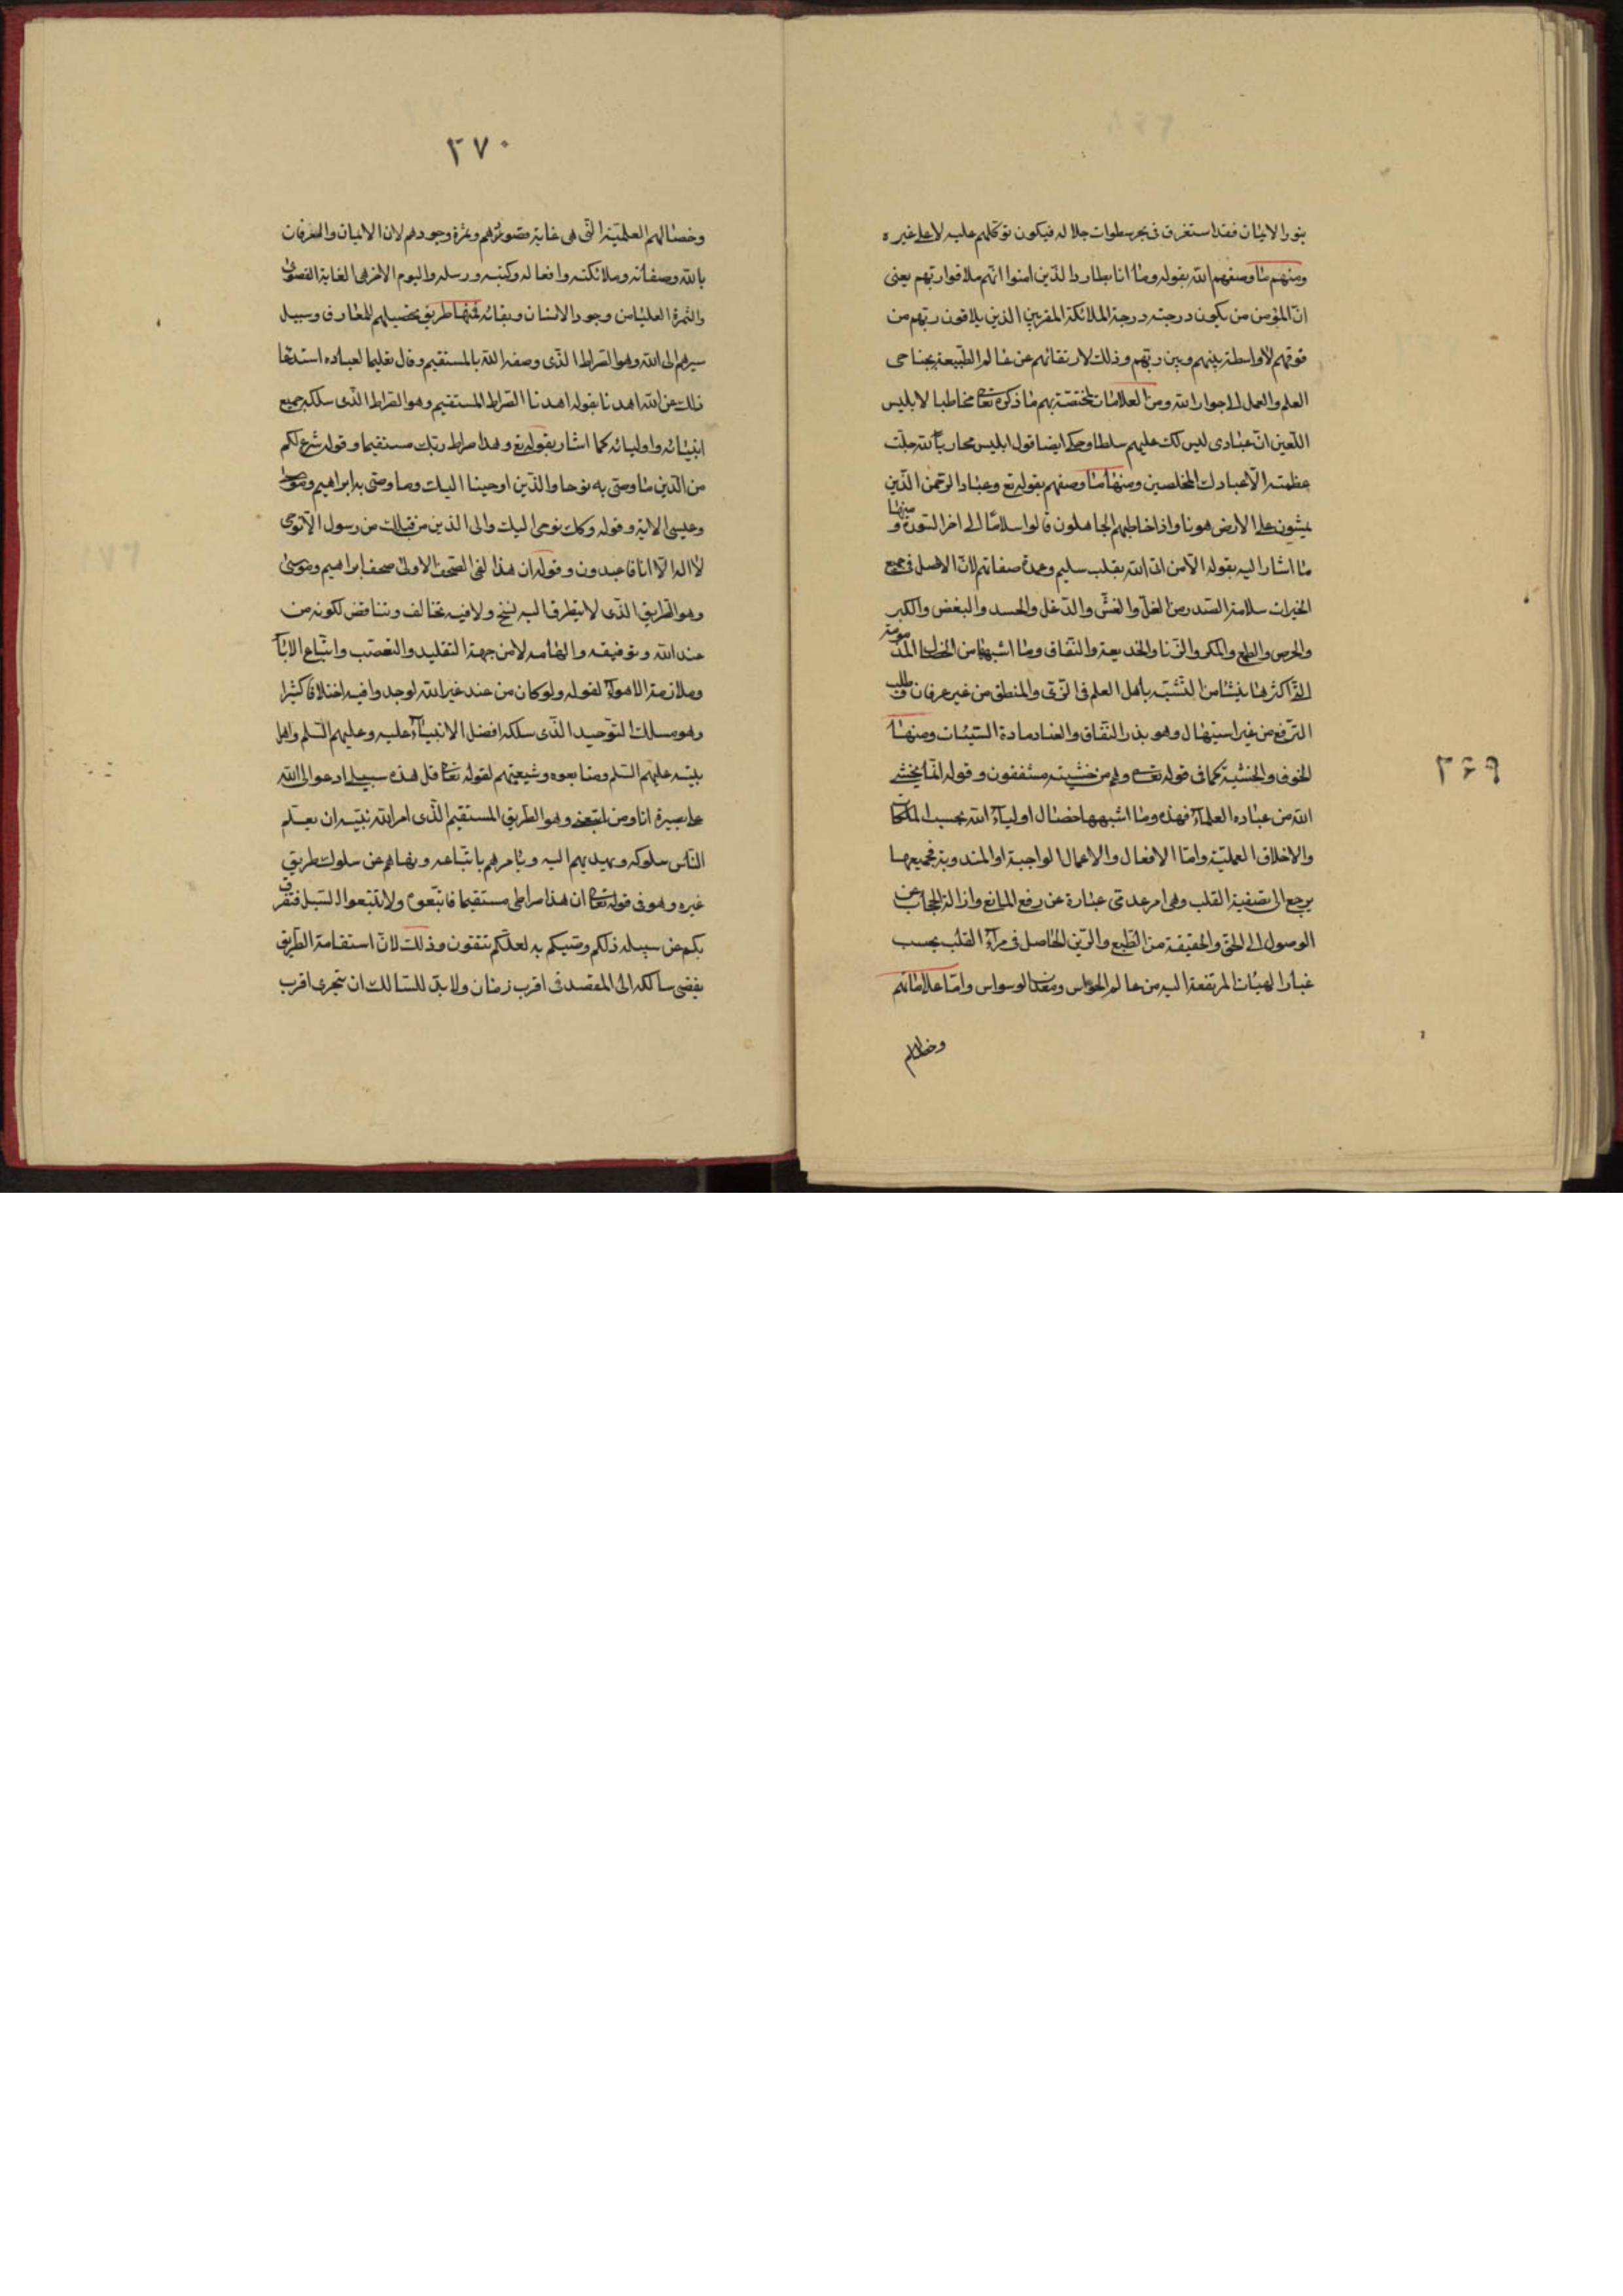 بنور الايمان فقد استغرق فى بحر سطوات جلاله فيكون توكلهم عليه لا على غيره
ومنهم ما وصفهم الله بقوله وما انا بطارد الذين امنوا انهم ملاقوا ربهم يعنى
ان المؤمن من يكون درجته درجة الملائكة المقربين الذين يلاقون ربهم من
فوقهم لا واسطة بينهم وبين ربهم وذلك لارتقائهم عن عالم الطبيعة بجناحى
العلم والعمل الى جوار الله ومن العلامات المختصة بهم ما ذكره تعا مخاطبا لابليس
اللعين ان عبادى ليس لك عليهم سلطا وحكى ايضا قول ابليس محاربا لله جلت
عظمته الا عبادك المخلصين ومنها ما وصفهم بقوله تع وعباد الرحمن الذين
يمشون على الارض هونا واذا خاطبهم الجاهلون قالوا سلاما الى اخر السورة ومنها
ما اشار اليه بقوله الا من اتى الله بقلب سليم وعمدة صفاتهم لان الاصل فى جميع
الخيرات سلامة الصدر من الغل والغش والدغل والحسد والبغض والكبر
والحرص والطمع والمكر والزنا والخديعة والنفاق وما اشبهها من الخصال المذمومة
التى اكثرها ينشا من التشبه باهل العلم فى الزى والمنطق من غير عرفان وطلب
الترفع من غير استيهال وهو بذر النفاق والعناد مادة السيئات ومنها
الخوف والخشية كما فى قوله تعا وهم من خشيته مشفقون وقوله انما يخشى
الله من عباده العلماء فهذه وما اشبهها خصال اولياء الله بحسب الملكات
والاخلاق العملية واما الافعال والاعمال الواجبة او المندوبة فجميعها
يرجع الى تصفية القلب وهى امر عدمى عبارة عن رفع المانع وازالة الحجاب عن
الوصول الى الحق والحقيقة من الطبع والرين الحاصل فى مرآة القلب بحسب
غبار الهيئات المرتفعة اليه من عالم الحواس ومعدن الوسواس واما علاماتهم
وخصالهم
٢۶٩
٢٧٠
وخصالهم العلمية التى هى غاية وثمرة وجودهم لان الايمان والعرفان
بالله وصفاته وملائكته وافعاله وكتبه ورسله واليوم الاخر هى الغاية القصوى
والثمرة العليا من وجود الانسان وبقائه فمنها طريق تحصيلهم للمعارف وسبيل
سيرهم الى الله وهو الصراط الذى وصفه الله بالمستقيم وقال تعليما لعباده استدعا
ذلك عن الله اهدنا بقوله اهدنا الصراط المستقيم وهو الصراط الذى سلكه جميع
انبيائه واوليائه كما اشار بقوله تع وهذا صراط ربك مستقيما وقوله شرع لكم
من الدين ما وصى به نوحا والذين اوحينا اليك وما وصى به ابراهيم وموسى
وعيسى الاية وقوله وكك نوحى اليك والى الذين من قبلك من رسول الا نوحى
لا اله الا انا فاعبدون وقوله ان هذا لفى الصحف الاولى صحف ابراهيم وموسى
وهو الطريق الذى لا يتطرق اليه نسخ ولا فيه تخالف وتناقض لكونه من
عند الله وتوفيقه والهامه لا من جهة التقليد والتعصب واتباع الاباء
وملازمة الاهواء لقوله ولو كان من عند غير الله لوجدوا فيه اختلافا كثيرا
وهو مسلك التوحيد الذى سلكه افضل الانبياء عليه وعليهم السلم واهل
بيته عليهم السلم ومتابعوه وشيعتهم لقوله تعا قل هذه سبيلى ادعوا الى الله
على بصيرة انا ومن اتبعنى وهو الطريق المستقيم الذى امر الله نبيه ان يعلم
الناس سلوكه ويهديهم اليه ويامرهم باتباعه وينهاهم عن سلوك طريق
غيره وهو فى قوله تعا ان هذا صراطى مستقيما فاتبعوه ولا تتبعوا السبل فتفرق
بكم عن سبيله ذلكم وصيكم به لعلكم تتقون وذلك لان استقامة الطريق
يفضى سالكه الى المقصد فى اقرب زمان ولا بد للسالك ان يتحرى اقرب